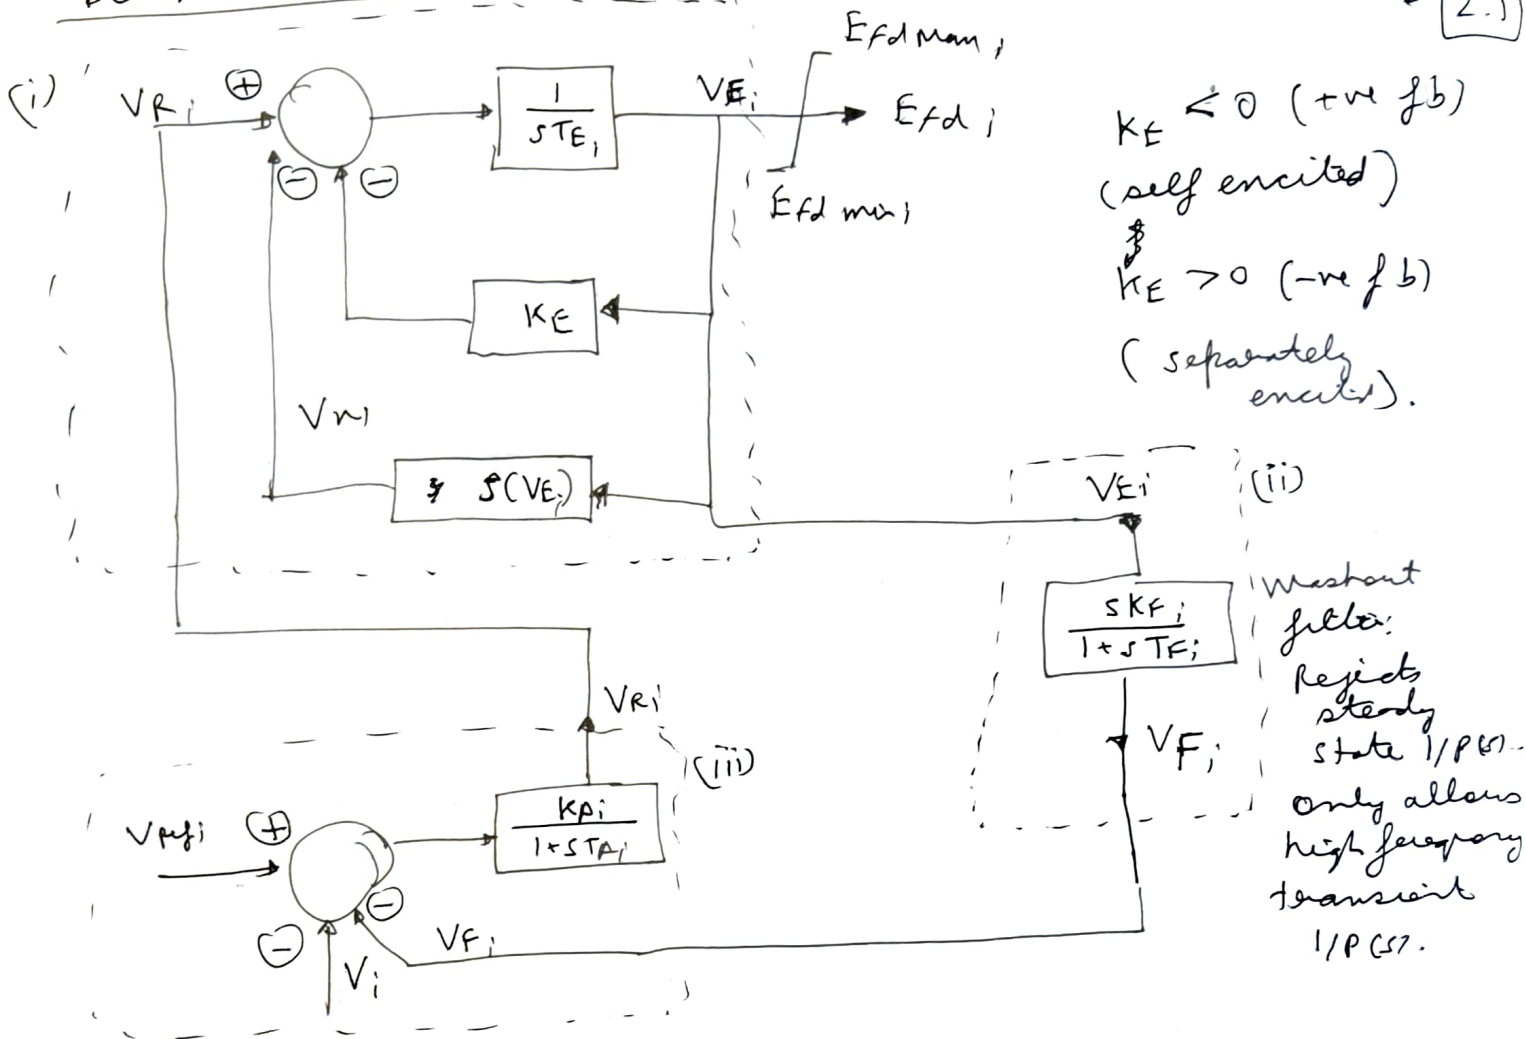 2.5
(i)
VRi
⊕
⊖ ⊖
1
sTEi
VEi
Efd Max i
Efd i
Efd min i
KE
Vxi
S(VEi)
KE < 0 (+ve fb)
(self excited)
KE > 0 (-ve fb)
(separately
excited).
VEi
(ii)
sKFi
1+sTFi
VFi
Washout
filter:
Rejects
steady
state I/P(s).
only allows
high frequency
transient
I/P(s).
VRi
(iii)
Vrefi
⊕
⊖
⊖
KAi
1+sTAi
Vi
VFi